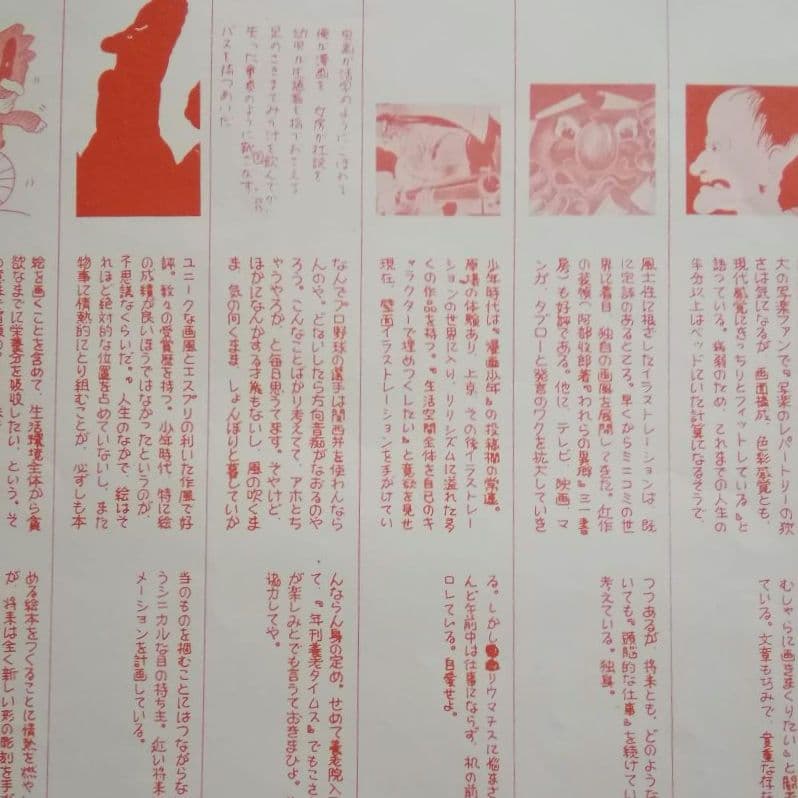 大の写楽ファンで、『写楽のレパートリーの狭
さは気になるが、画面構成、色彩感覚とも、
現代感覚にきっちりとフィットしている』と
語っている。病弱のため、これまでの人生の
半分以上はベッドにいた計算になるそうで、
むしゃらに画きまくりたい』と
ている。文章も巧みで、貴重な存
風土性に根ざしたイラストレーションは、既
に定評のあるところ。早くからミニコミの世
界に着目、独自の画風を展開してきた。近作
の装幀、『われらの異郷』三一書
房』も好評である。他に、テレビ、映画、マ
ンガ、タブローと発言のワクを拡大していき
つつあるが、将来とも、どのような
いても『頭脳的な仕事』を続けてい
考えている。独身。
少年時代は、『漫画少年』の投稿欄の常連。
の体験あり。上京、その後イラストレー
ションの世界に入り、リリシズムに溢れた多
くの作品を持つ。『生活空間全体を自己のキ
ャラクターで埋めつくしたい』と意欲を見せ
現在、壁面イラストレーションを手がけてい
る。しかしリウマチスに悩まさ
んど午前中は仕事にならず、机の前
ロしている。自愛せよ。
俺が漫画を
バスを待つめいた
なんでプロ野球の選手は関西弁を使わんなら
んのや。どないしたら方向音痴がなおるのや
ろう。こんなことばかり考えてて、アホとち
ゃうやろか、と毎日思うてます。そやけど、
ほかになんかする才能もないし、風の吹くま
ま、気の向くまま、しょんぼりと暮していか
んならん身の定め。せめて養老院入
て、『年刊養老タイムス』でもこさ
が楽しみとでも言うておきまひよ。
協力してや。
ユニークな画風とエスプリの利いた作風で好
評。数々の受賞歴を持つ。少年時代、特に絵
の成績が良いほうではなかったというのが、
不思議なくらいだ。『人生のなかで、絵はそ
れほど絶対的な位置を占めていないし、また
物事に情熱的にとり組むことが、必ずしも本
当のものを掴むことにはつながらな
うシニカルな目の持ち主。近い将来
メーションを計画している。
絵を画くことを含めて、生活環境全体から貪
欲なまでに栄養分を吸収したい、という。そ
める絵本をつくることに情熱を燃や
が、将来は全く新しい形の彫刻を手が